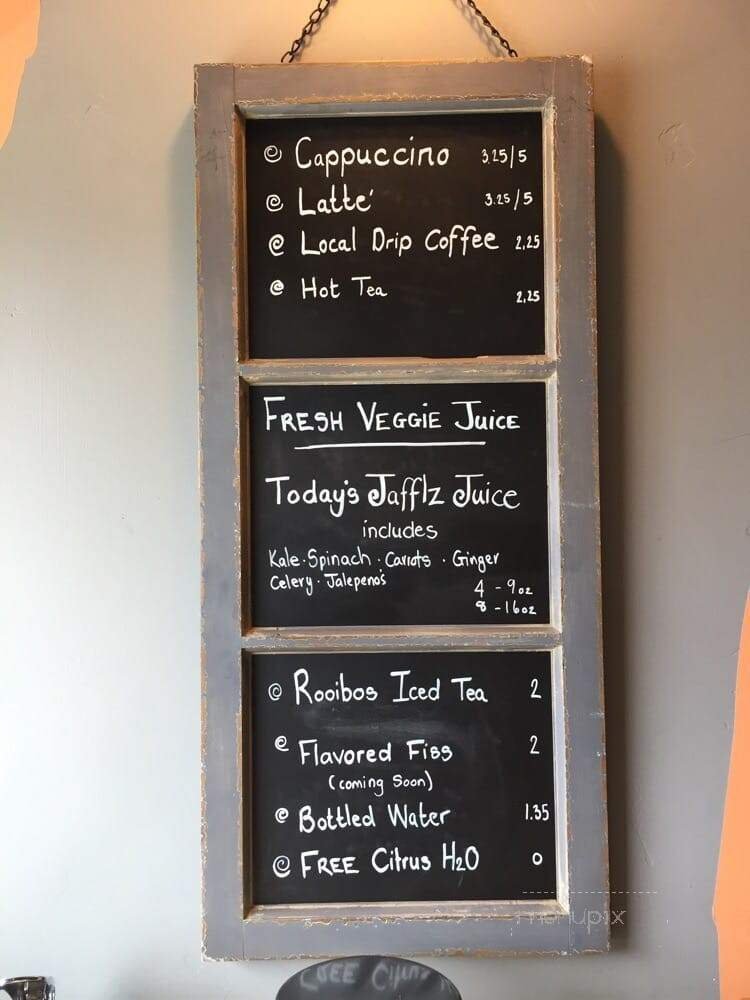 Cappuccino 3.25/5
Latte' 3.25/5
Local Drip Coffee 2.25
Hot Tea 2.25
FRESH VEGGIE JUICE
Today's Jafflz Juice
includes
Kale · Spinach · Carrots · Ginger
Celery · Jalepeno's
4 - 9oz
8 - 16oz
Rooibos Iced Tea 2
Flavored Fiss 2
(coming Soon)
Bottled Water 1.35
FREE Citrus H2O 0
menupix